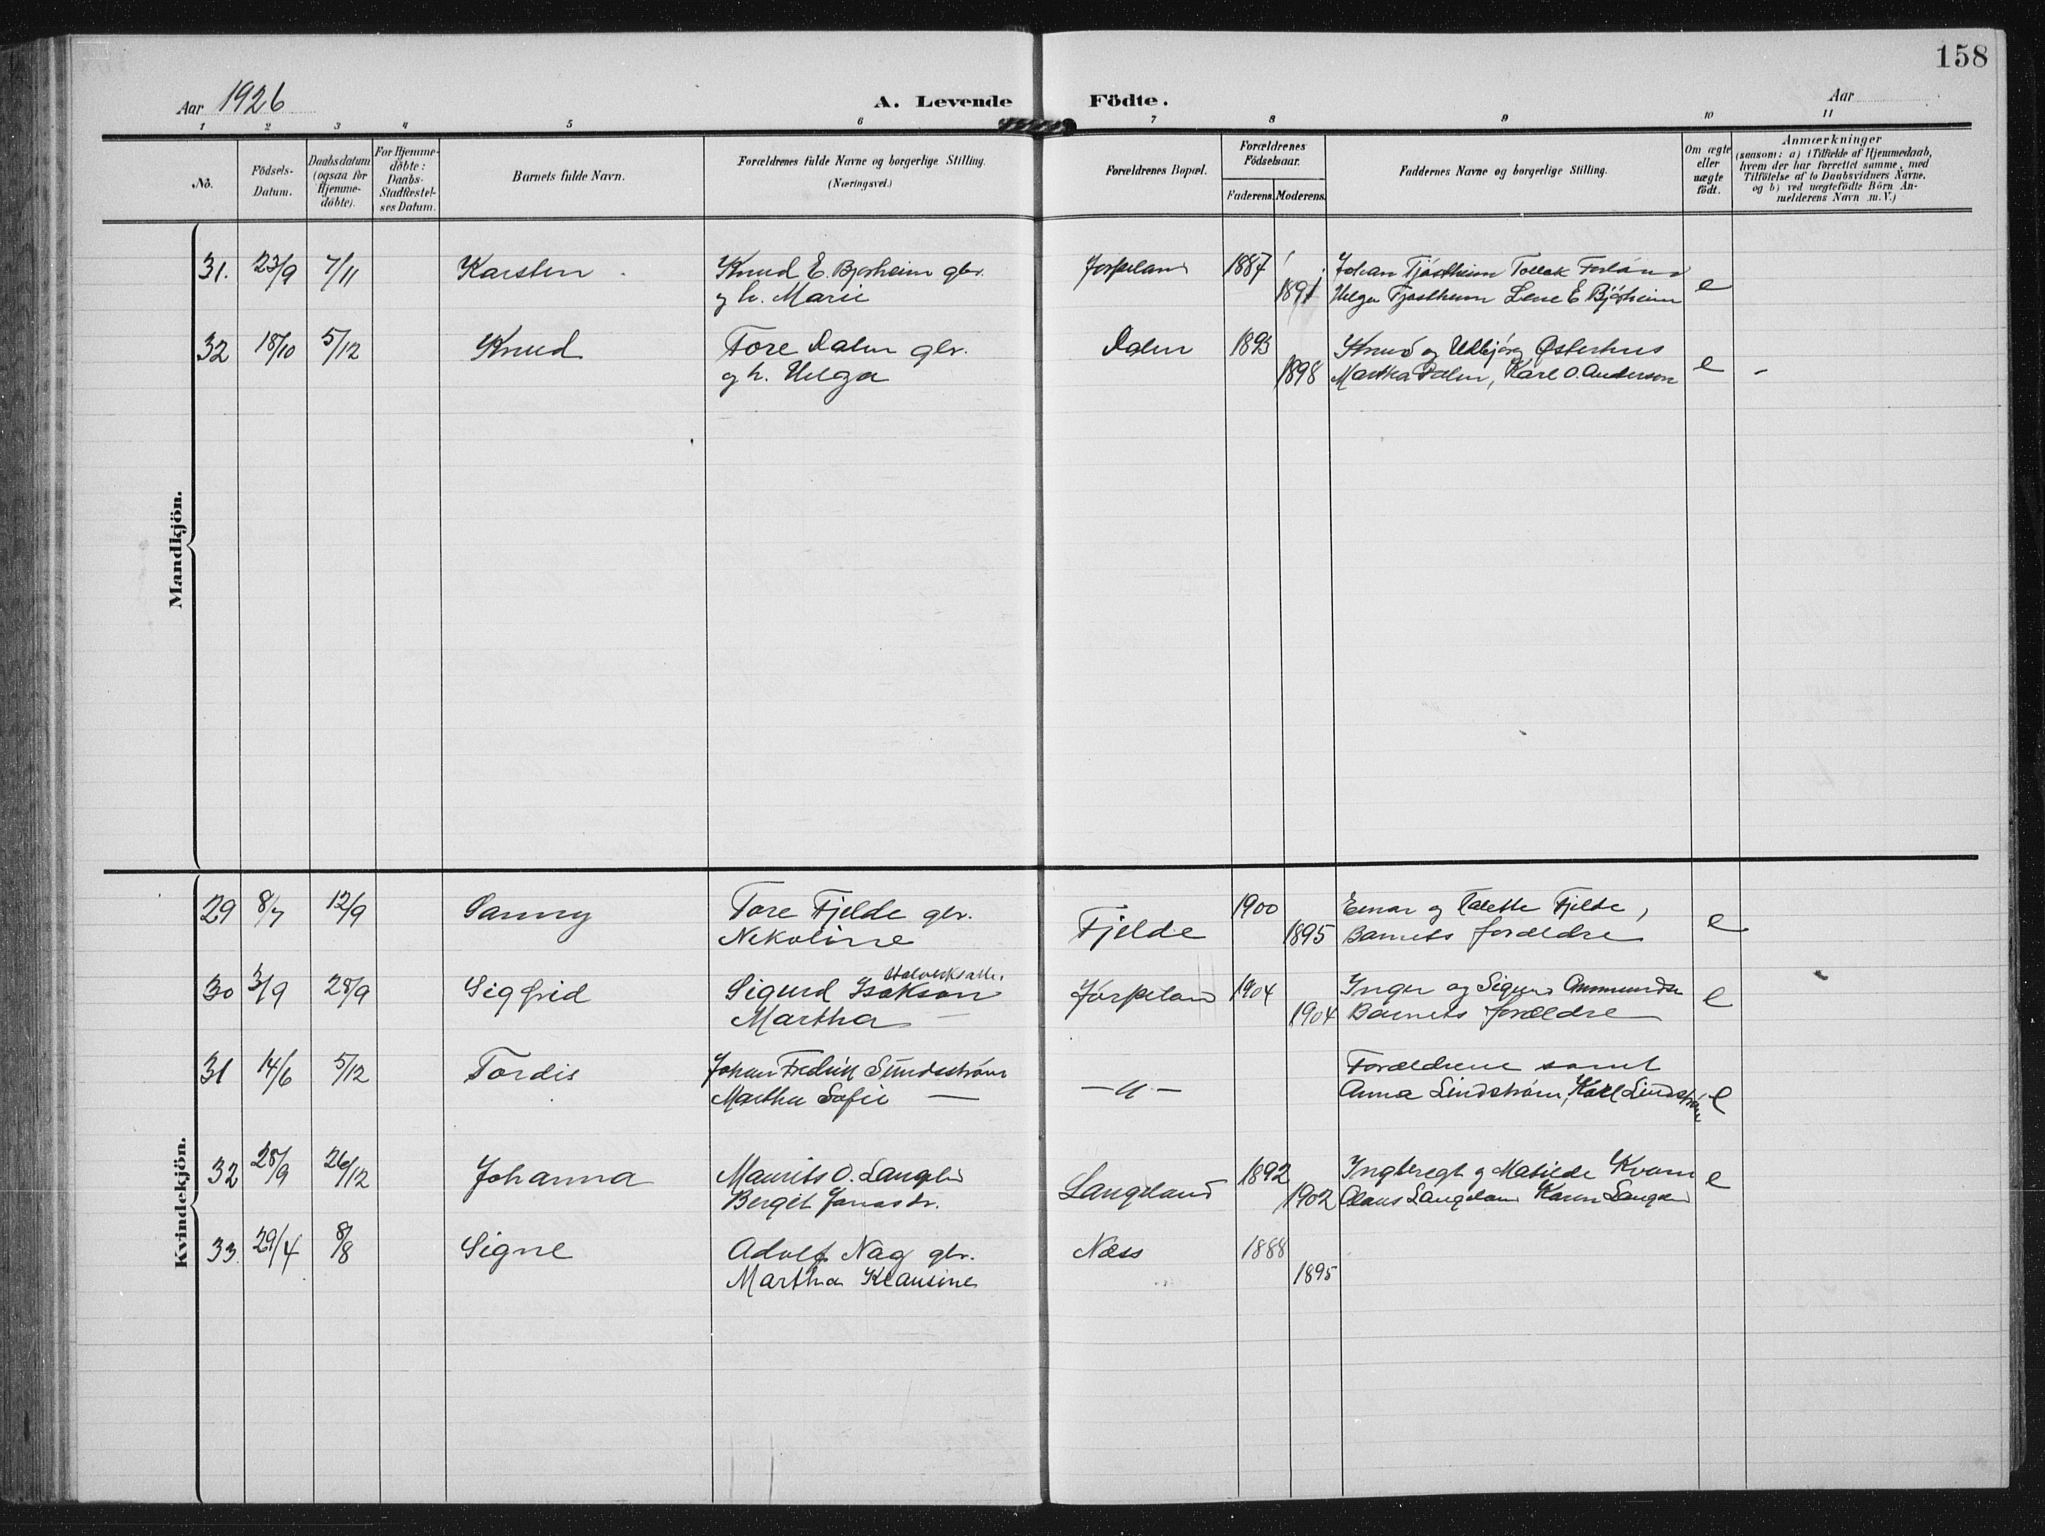 158
Aar 1926 A. Levende Födte. Aar
1 2 3 4 5 6 7 8 9 10 11
No. Födsels-Datum. Daabsdatum (ogsaa for Hjemmedöbte). For Hjemmedöbte: Daabs-Stadfæstelses Datum. Barnets fulde Navn. Forældrenes fulde Navne og borgerlige Stilling. (Næringsvei.) Forældrenes Bopæl. Forældrenes Födselsaar. Faderens. Moderens. Faddernes Navne og borgerlige Stilling. Om ægte eller uægte födt. Anmærkninger (saasom: a) i Tilfælde af Hjemmedaab, hvem der har forrettet samme, med Tilföielse af to Daabsvidners Navne, og b) ved uægtefödte Börn Anmelderens Navn m. V.)
Mandkjön.
31. 23/9 7/11 Karsten Knud E. Bjørheim gbr. Jørpeland 1887 Johan Tjøstheim Tollak
og h. Marie 1891 Helga Tjøstheim Lene E Bjørheim e
32 18/10 5/12 Knud Tore Dalen gbr. Dalen 1893 Knud og Østerhus
og h. Helga 1898 Martha Dalen, Karl O. Anderson e -
Kvindekjön.
29 8/7 12/9 Tore Fjelde gbr. 1900 Einar og Fjelde,
Nekoline Fjelde 1895 Barnets forældre e
30 3/9 28/9 Sigfrid Sigurd Isakson Jørpeland 1904 Inger og Sigurd
Martha — 1904 Barnets forældre e
31 14/6 5/12 Tordis Johan Fredrik Sundstrøm Forældrene samt
Martha Sofie — —"— Anna Lindstrøm, Karl Lindstrøm e
32 28/9 26/12 Johanna Maurits O. Langeland 1892 Ingbregt og Matilde Kvam
Berget Jonasdr. Langeland 1902 Claus Langeland Karen Langeland e
33 29/4 8/8 Signe Adolf Nag gbr. Næss 1888
Martha Klausine 1895